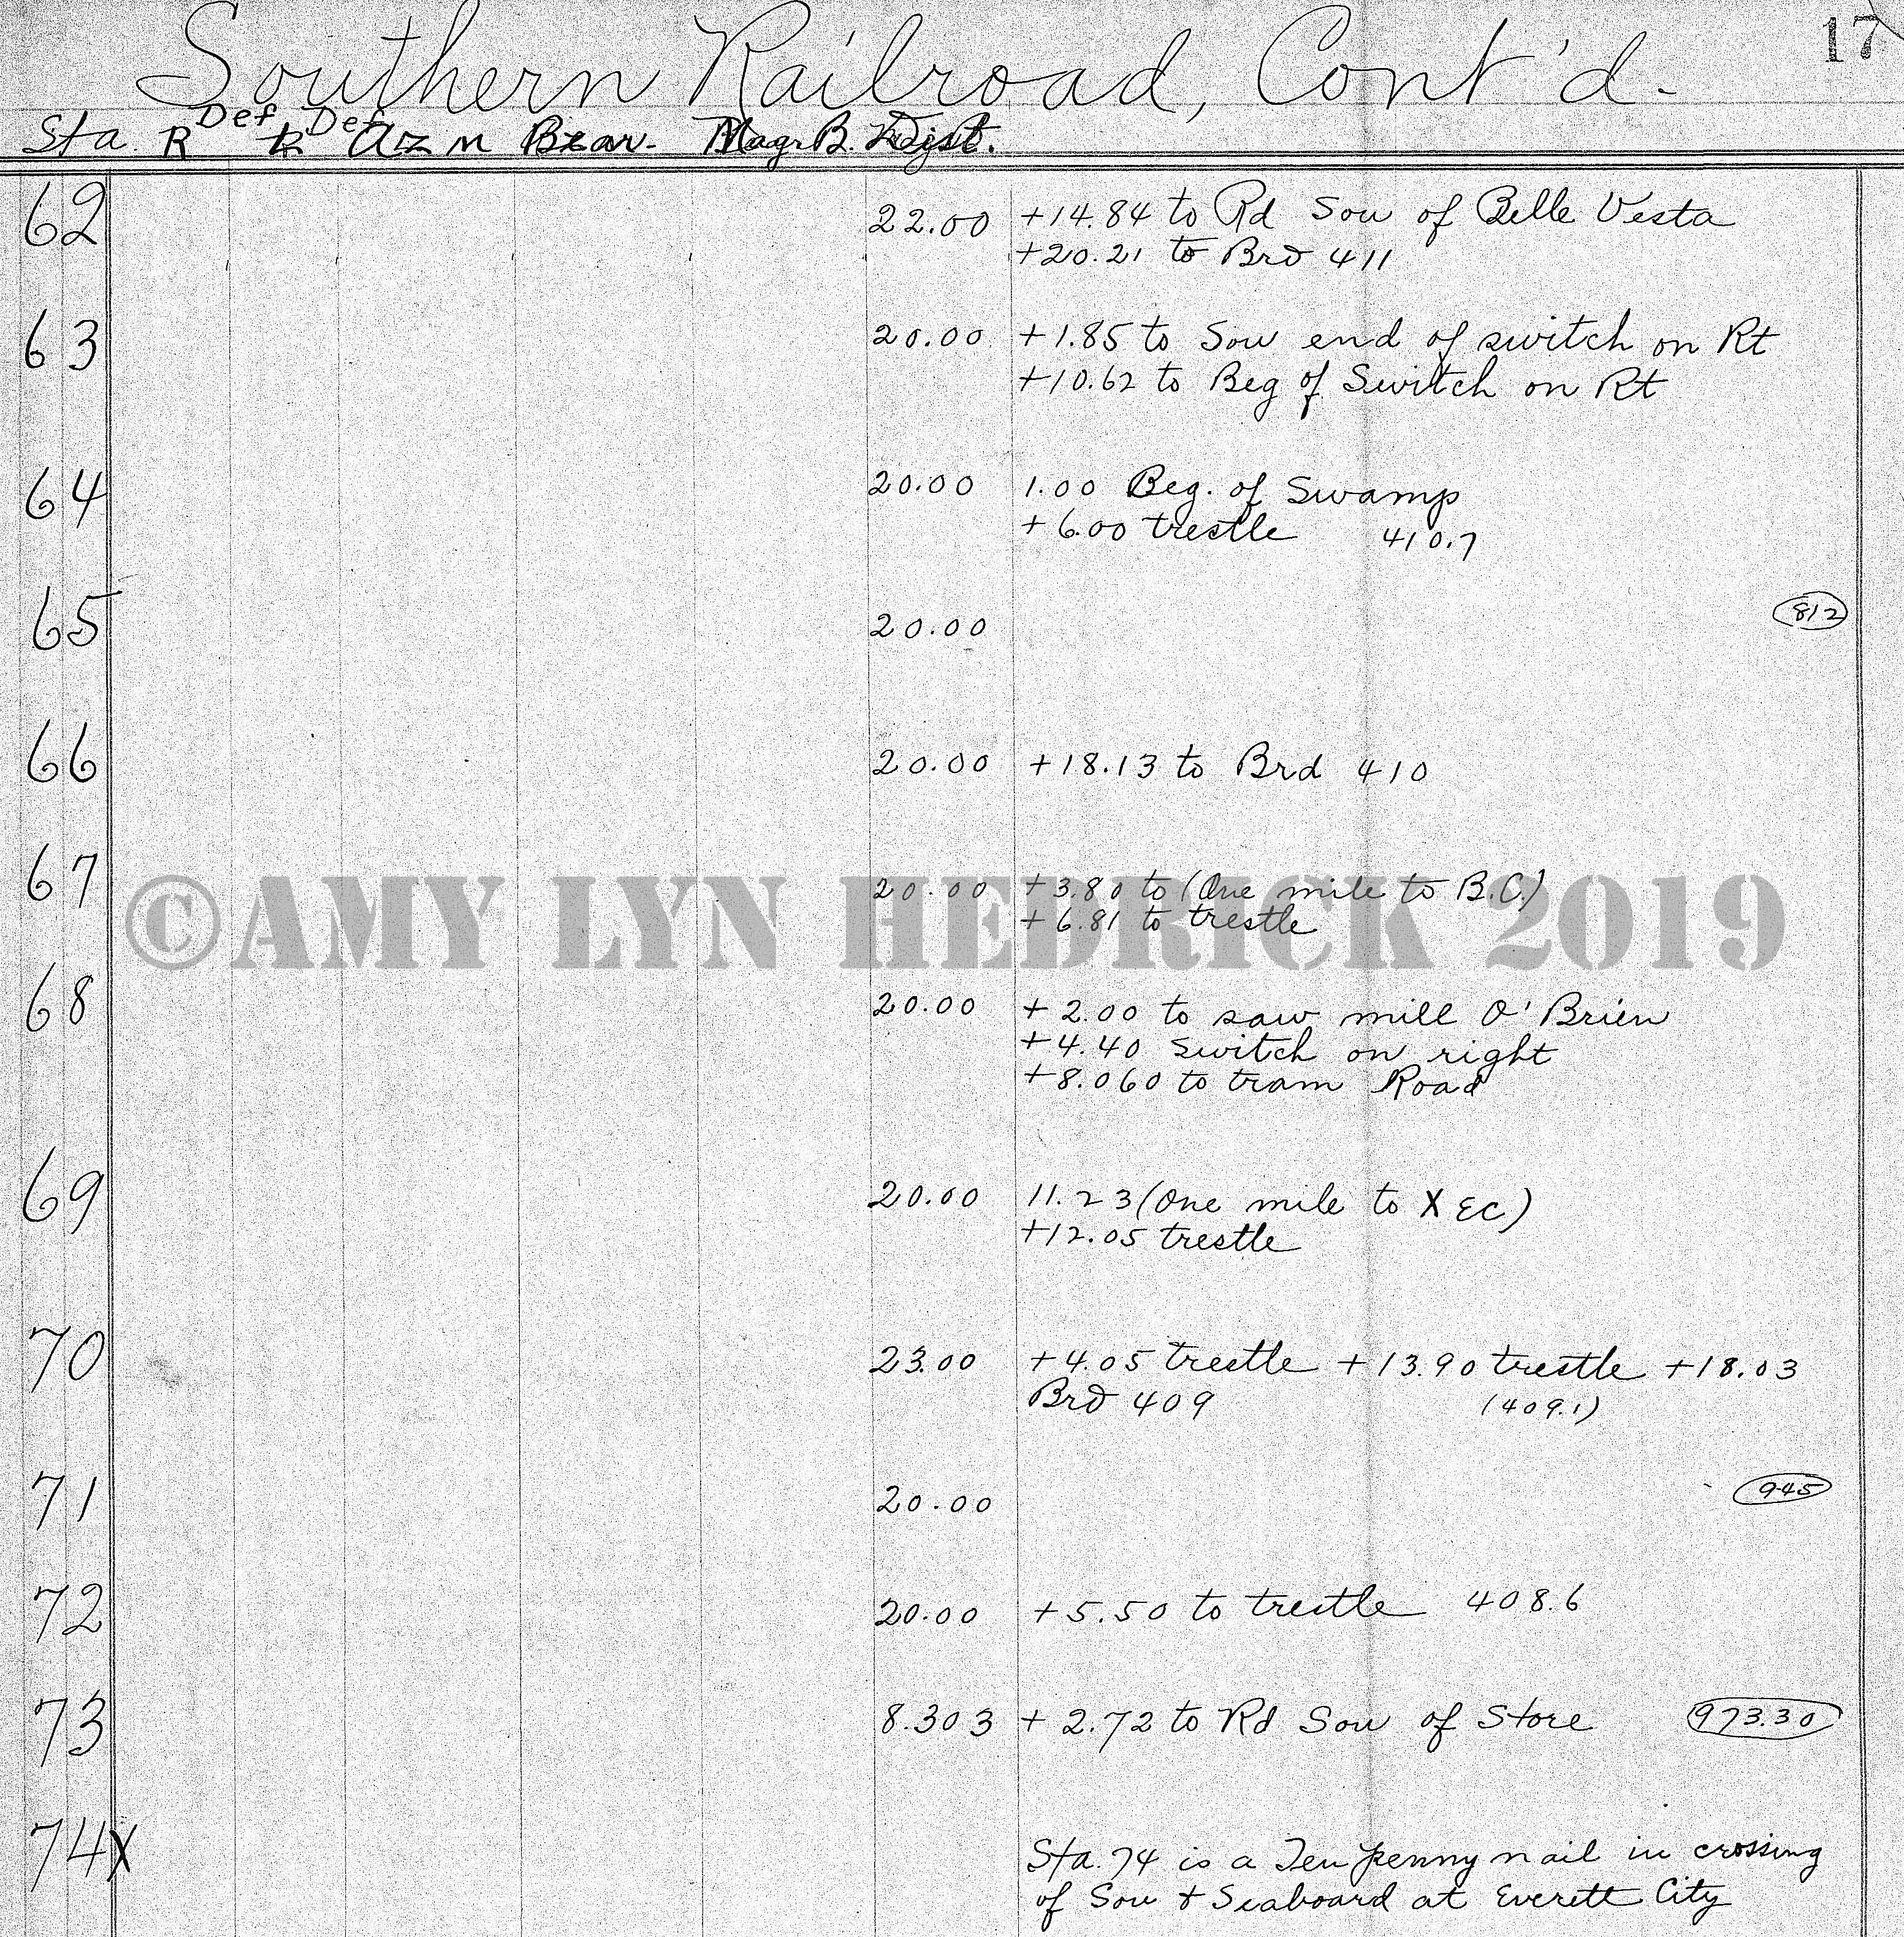 17
Southern Railroad, Cont'd.
Sta. R Def R Def Azm Bear. Mag. B. Dist.
62 22.00 +14.84 to Rd Sou of Belle Vesta
+20.21 to Brd 411
63 20.00 +1.85 to Sou end of switch on Rt
+10.62 to Beg of Switch on Rt
64 20.00 1.00 Beg. of Swamp
+6.00 trestle 410.7
65 20.00 812
66 20.00 +18.13 to Brd 410
67 20.00 +3.80 to (One mile to B.C.)
+6.81 to trestle
©AMY LYN HEDRICK 2019
68 20.00 +2.00 to saw mill O'Brien
+4.40 switch on right
+8.060 to tram Road
69 20.00 11.23 (One mile to X EC)
+12.05 trestle
70 23.00 +4.05 trestle +13.90 trestle +18.03
Brd 409 (409.1)
71 20.00 945
72 20.00 +5.50 to trestle 408.6
73 8.303 +2.72 to Rd Sou of Store 973.30
74X
Sta. 74 is a Ten penny nail in crossing
of Sou & Seaboard at Everett City